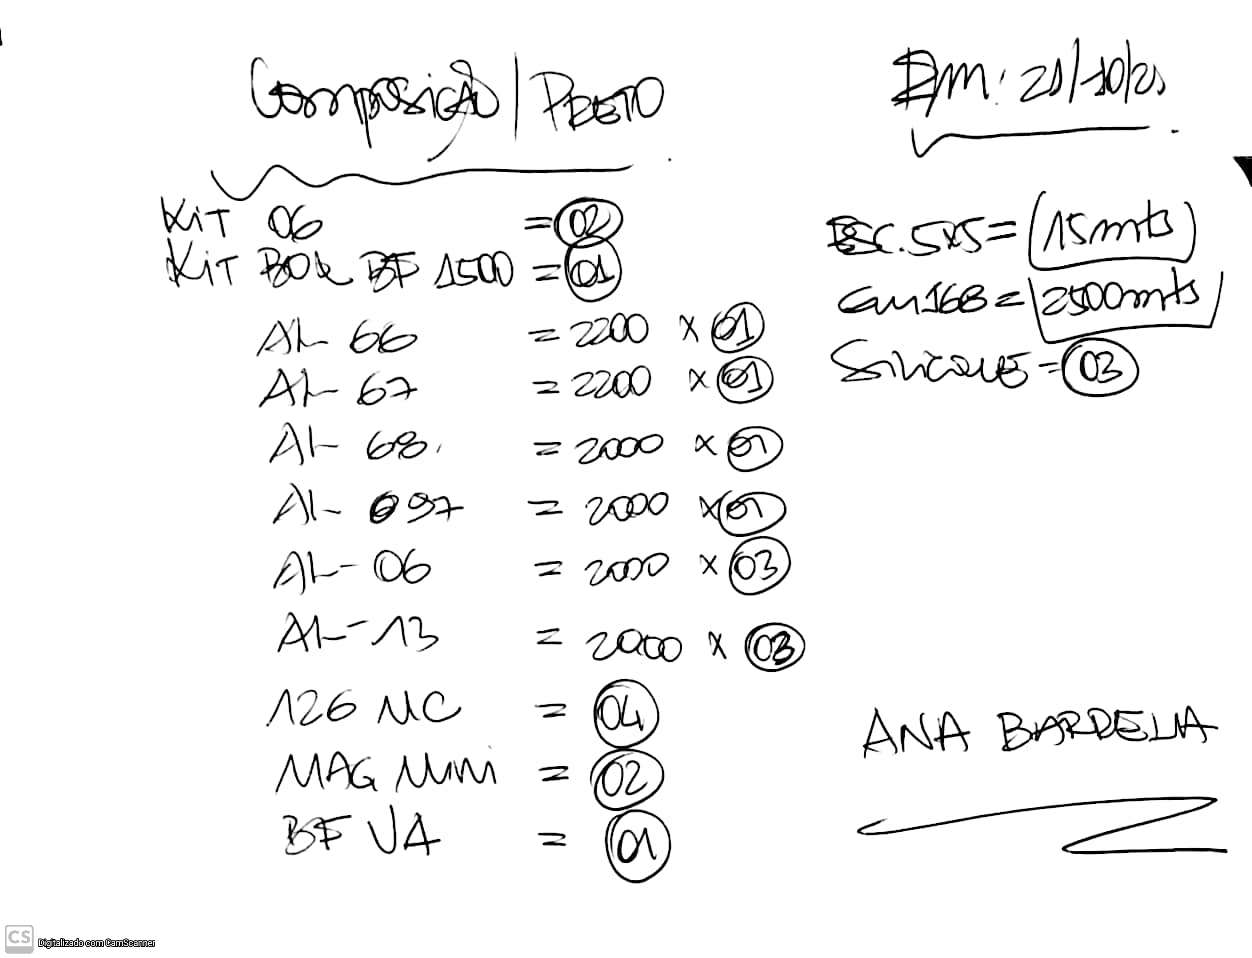 Composição | PRETO
Em: 21/10/21
KiT 06 = 02
KiT BOX BF 1500 = 01
AL 66 = 2200 x 01
AL 67 = 2200 x 01
AL 68. = 2000 x 01
AL 697 = 2000 x 01
AL-06 = 2000 x 03
AL-13 = 2000 x 03
126 NC = 04
MAG Mini = 02
BF VA = 01
ESC. 5x5 = 15mts
168 = 2500mts
Silicone = 03
ANA BARDELIA
CS Digitalizado com CamScanner